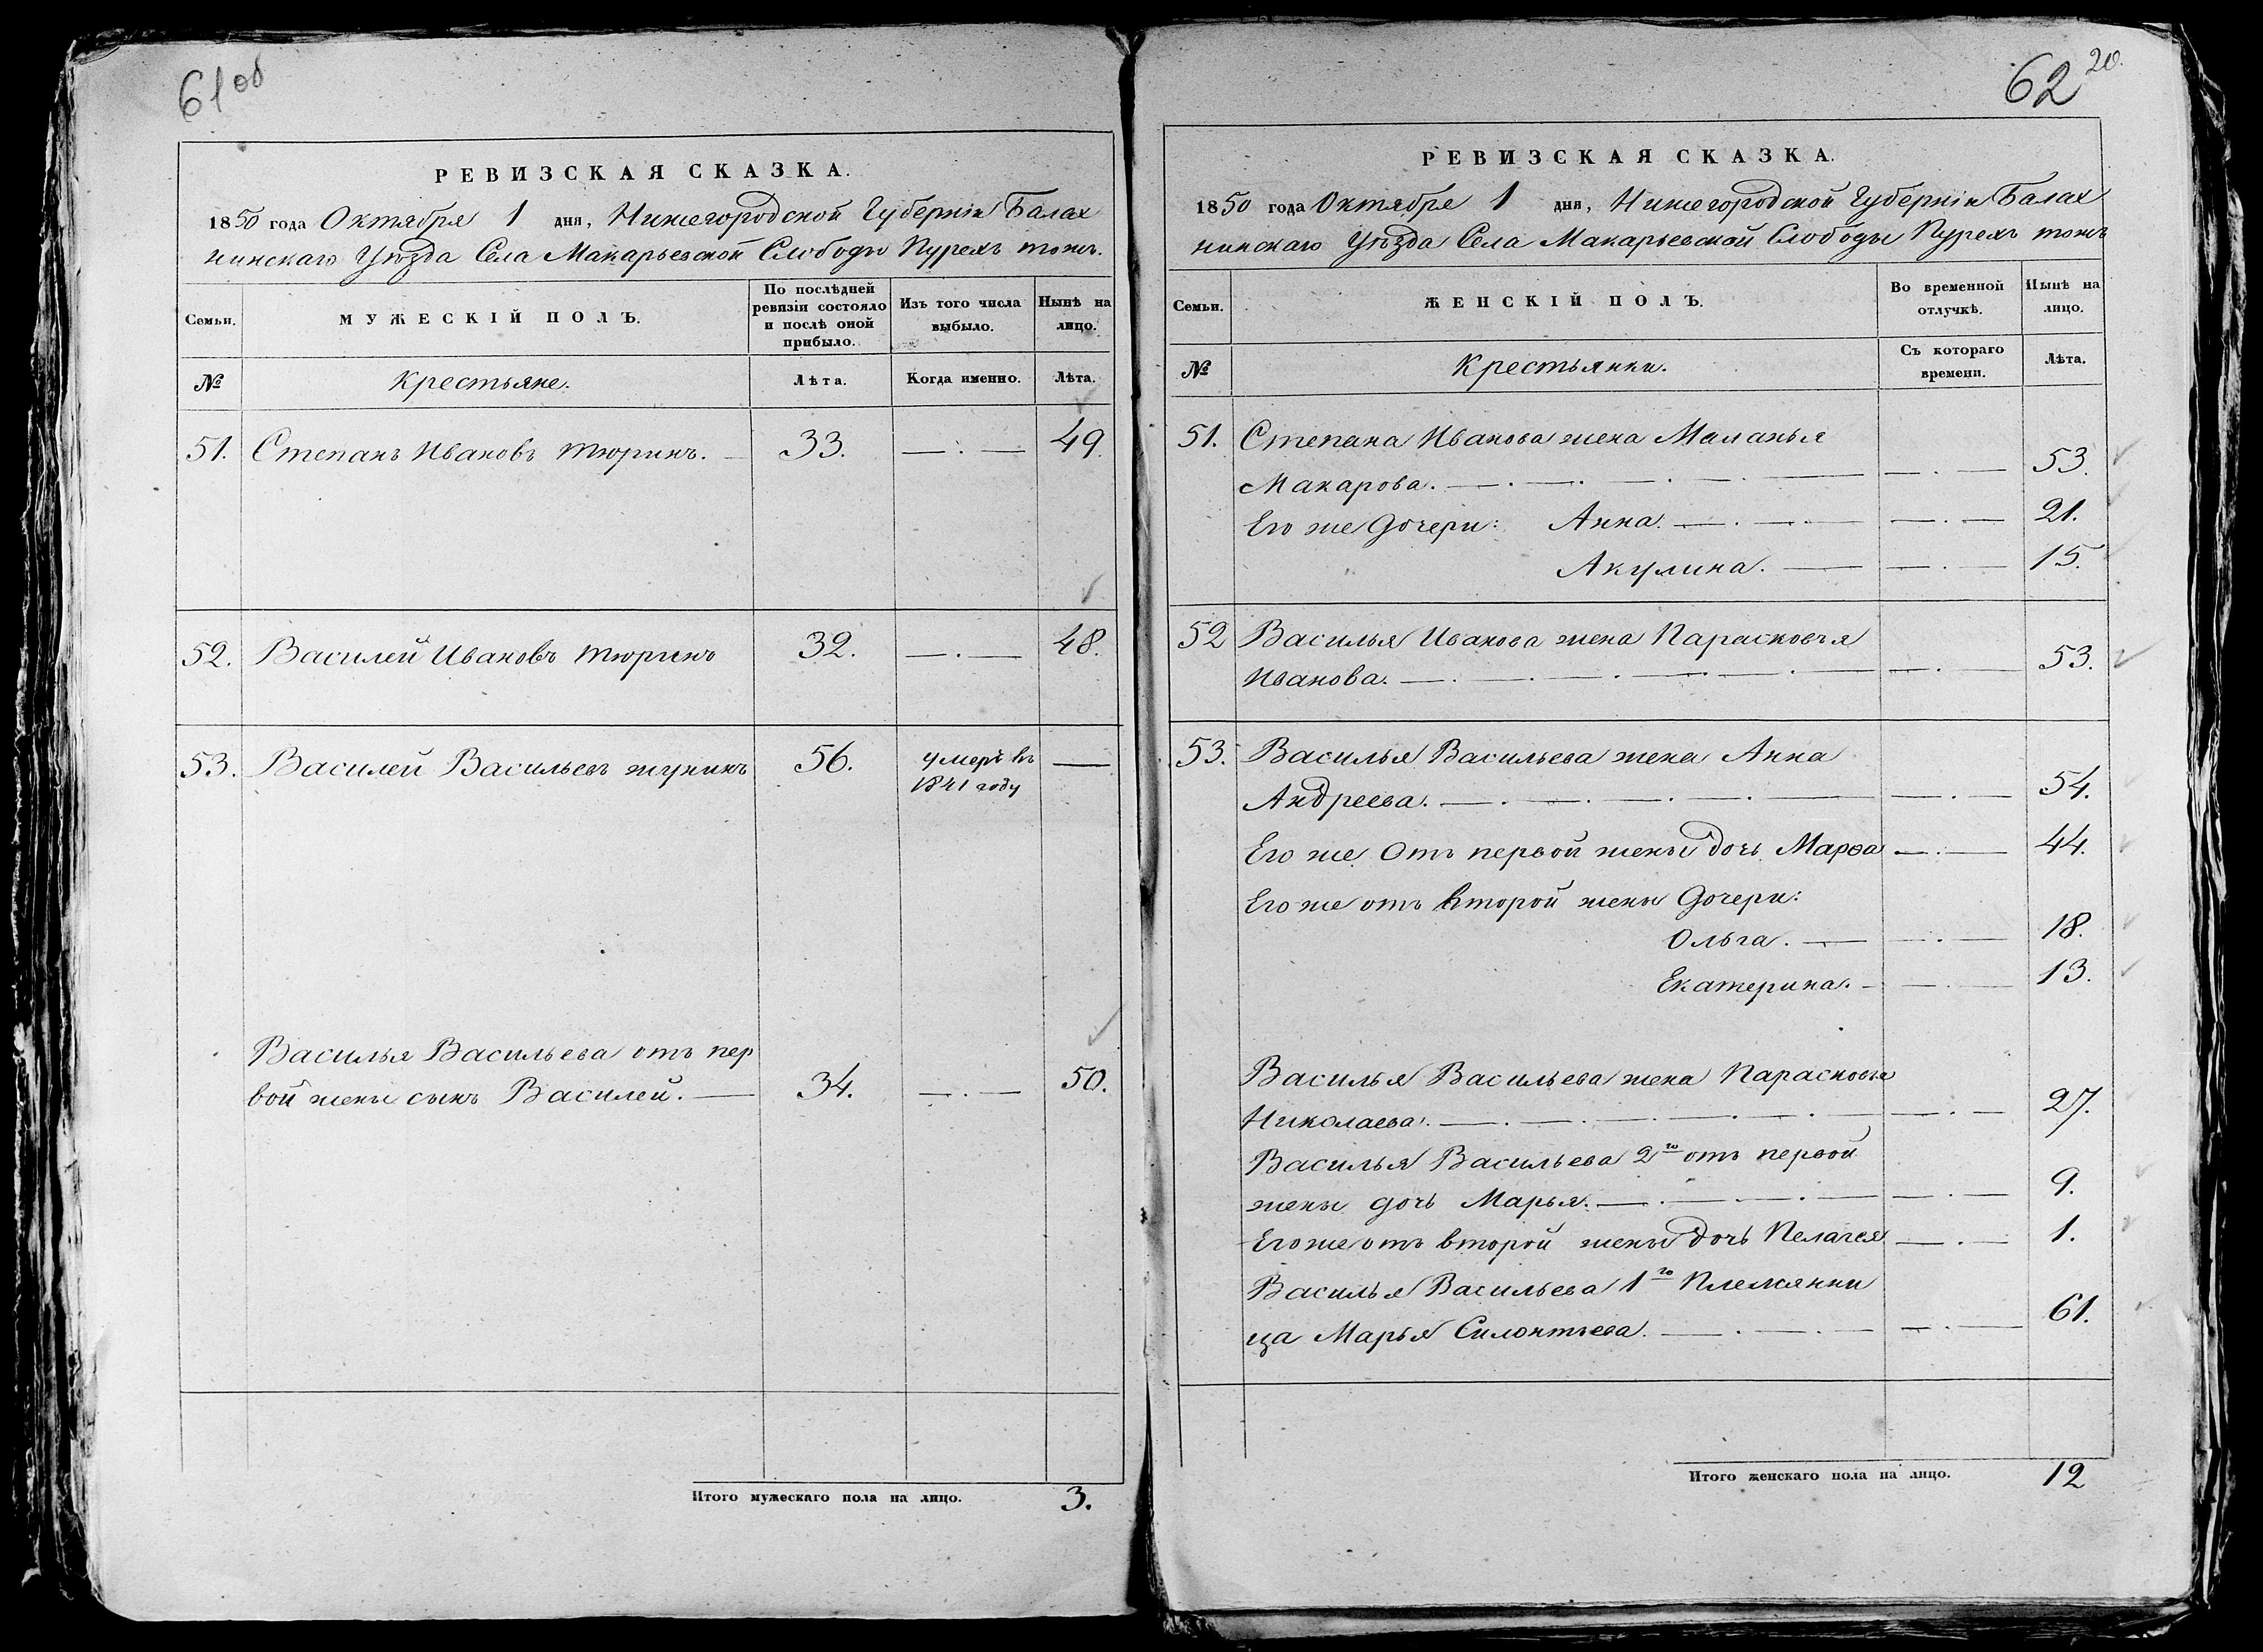 61об
РЕВИЗСКАЯ СКАЗКА.
1850 года Октября 1 дня, Нижегородской Губерніи Балах
нинскаго Уѣзда Села Макарьевской Слободы Пурехъ тожъ.
Семьи.
МУЖЕСКІЙ ПОЛЪ.
По послѣдней
ревизіи состояло
и послѣ оной
прибыло.
Изъ того числа
выбыло.
Нынѣ на
лицо.
№
Крестьяне.
Лѣта.
Когда именно.
Лѣта.
51. Степанъ Ивановъ Тюринъ. 33. 49.
52. Василей Ивановъ Тюринъ 32. 48.
53. Василей Васильевъ жунинъ 56. умеръ въ
1841 году
Василья Васильева отъ пер
вой жены сынъ Василей. 34. 50.
Итого мужескаго пола на лицо. 3.
62 20.
РЕВИЗСКАЯ СКАЗКА.
1850 года Октября 1 дня, Нижегородской Губерніи Балах
нинскаго Уѣзда Села Макарьевской Слободы Пурехъ тожъ
Семьи.
ЖЕНСКІЙ ПОЛЪ.
Во временной
отлучкѣ.
Нынѣ на
лицо.
№
Крестьянки.
Съ котораго
времени.
Лѣта.
51. Степана Иванова жена Маланья
Макарова. 53.
Его же дочери: Анна. 21.
Акулина. 15.
52 Василья Иванова жена Парасковья
Иванова. 53.
53. Василья Васильева жена Анна
Андреева. 54.
Его же отъ первой жены дочь Марѳа 44.
Его же отъ второй жены дочери:
Ольга. 18.
Екатерина. 13.
Василья Васильева жена Парасковья
Николаева. 27.
Василья Васильева 2го отъ первой
жены дочь Марья. 9.
Его же отъ второй жены дочь Пелагея 1.
Василья Васильева 1го Племянни
ца Марья Силонтьева. 61.
Итого женскаго пола на лицо. 12